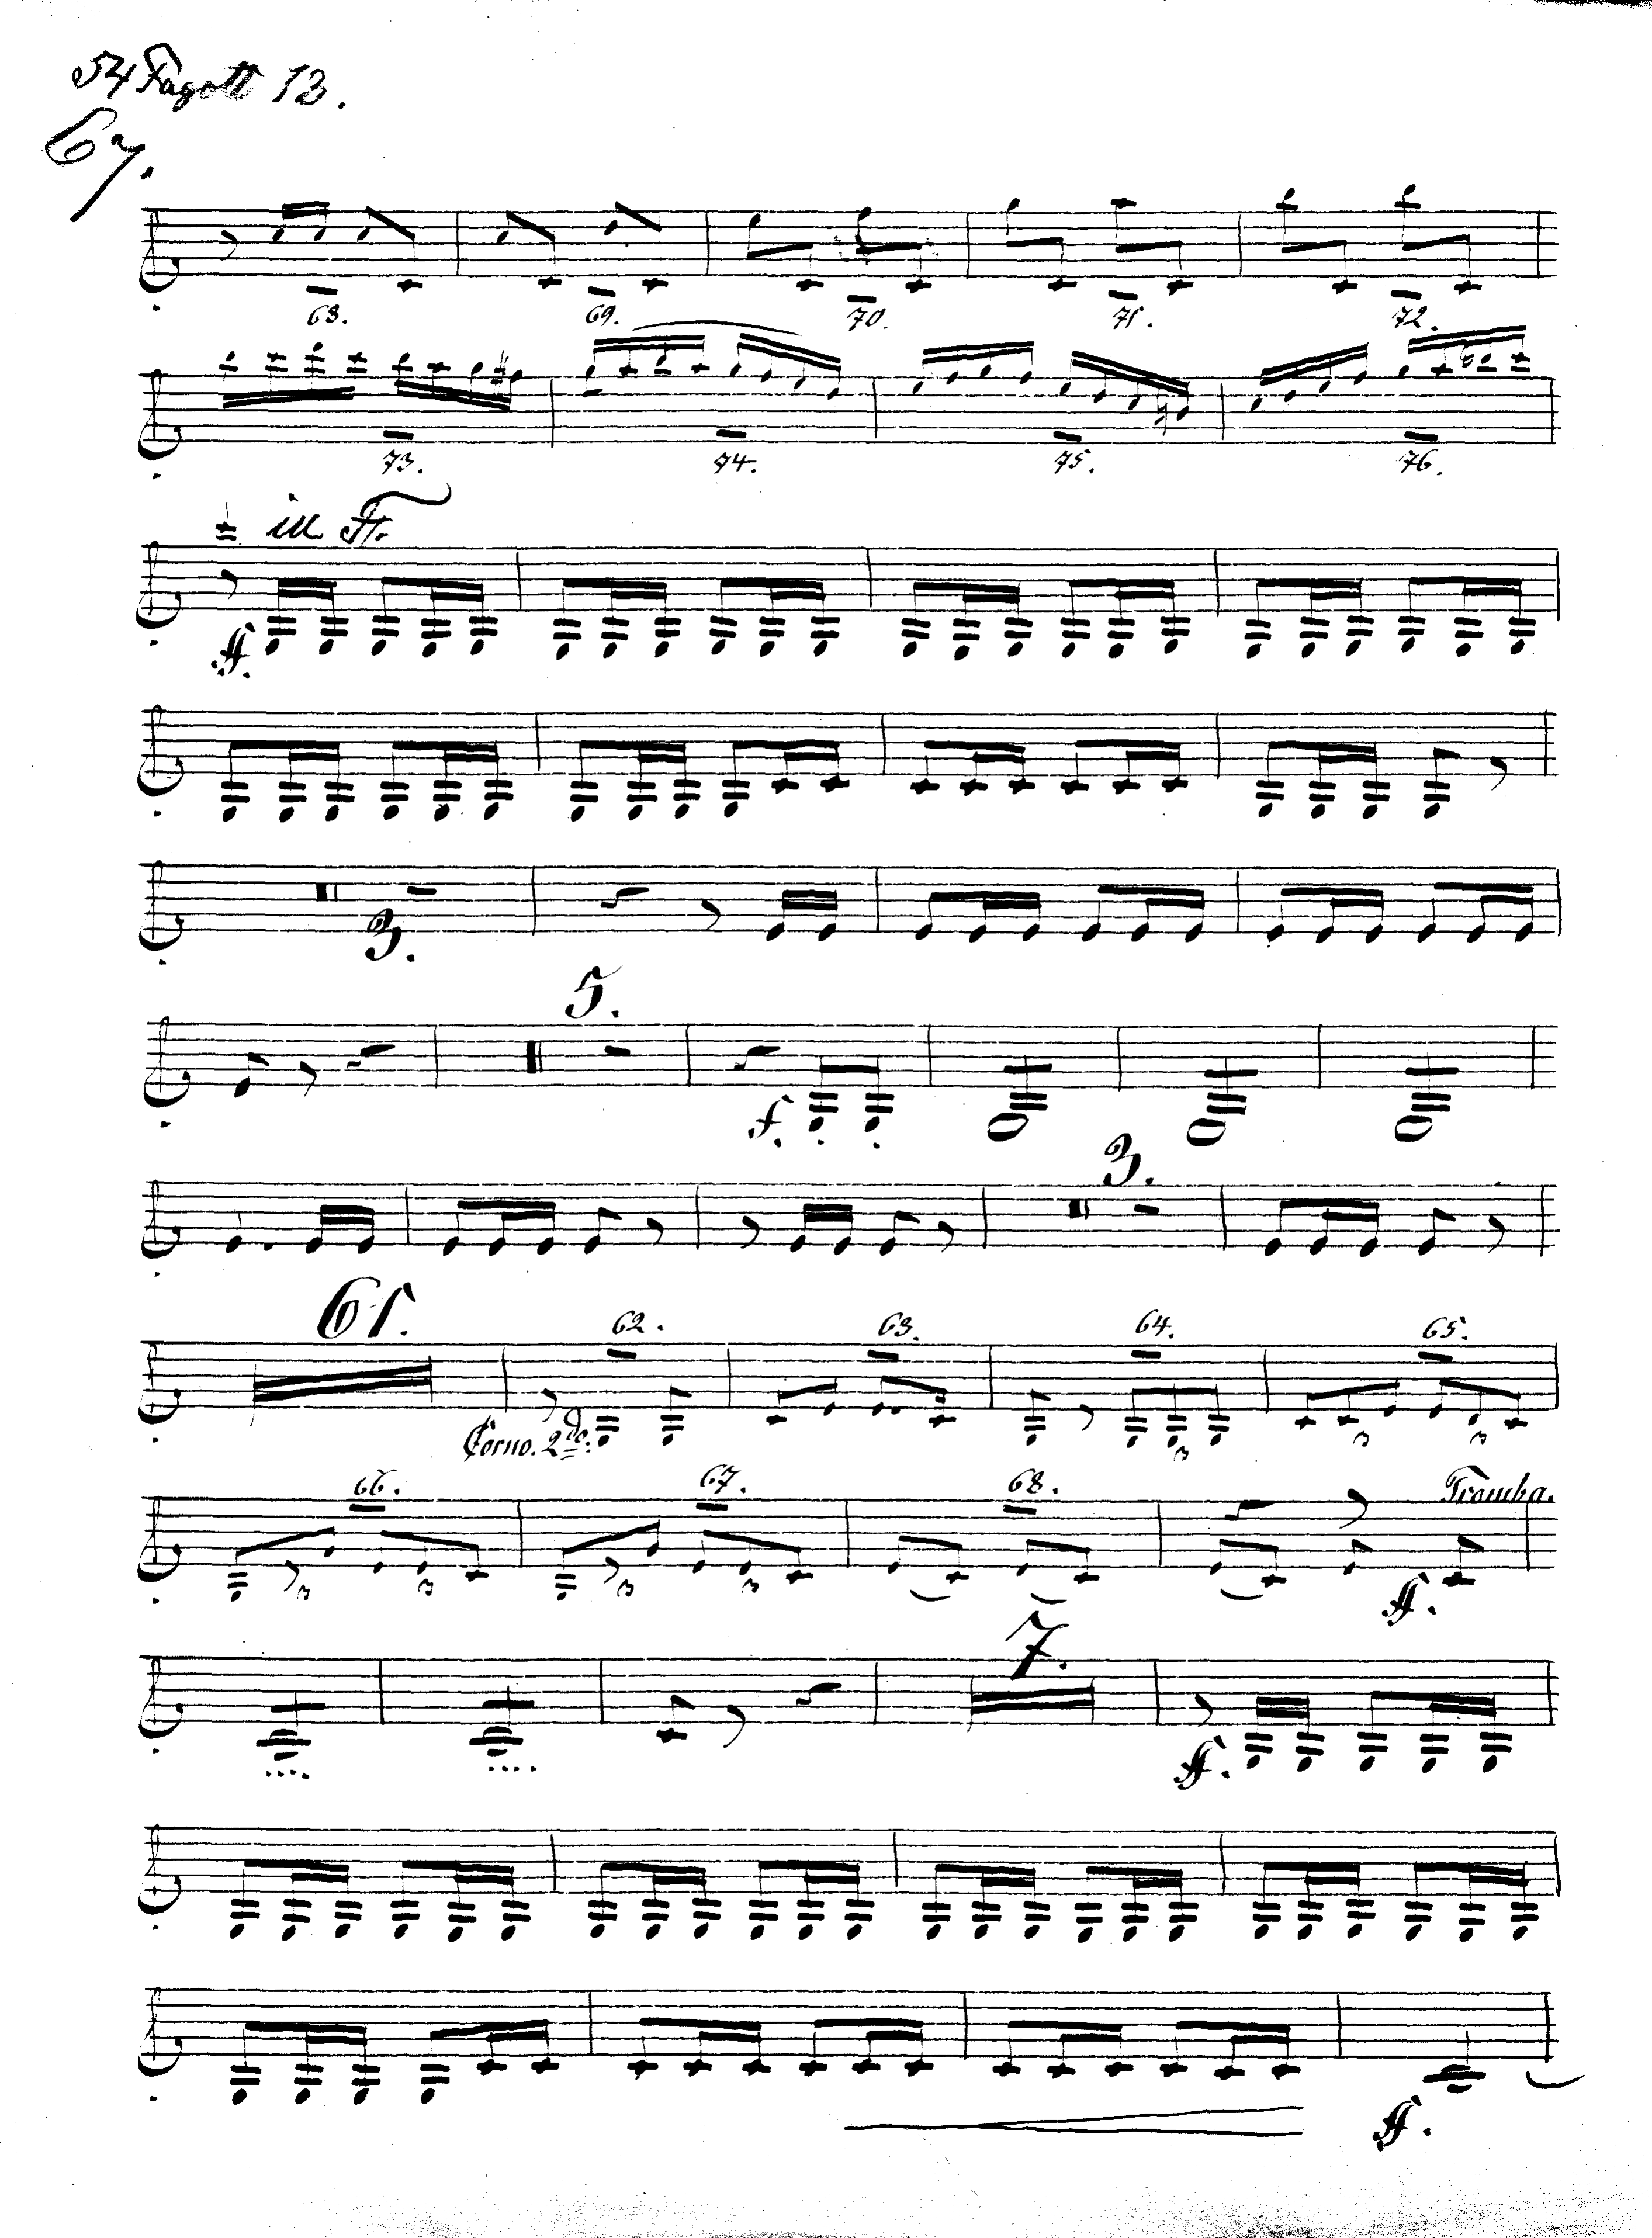 54 Fagott 13.
67.
68. 69. 70. 71. 72.
73. 74. 75. 76.
in
ff.
3.
5.
f.
3.
61. 62. 63. 64. 65.
Corno. 2do. 3 3 3
66. 67. 68. Tromba.
3 3 3 3
ff.
7.
ff.
ff.